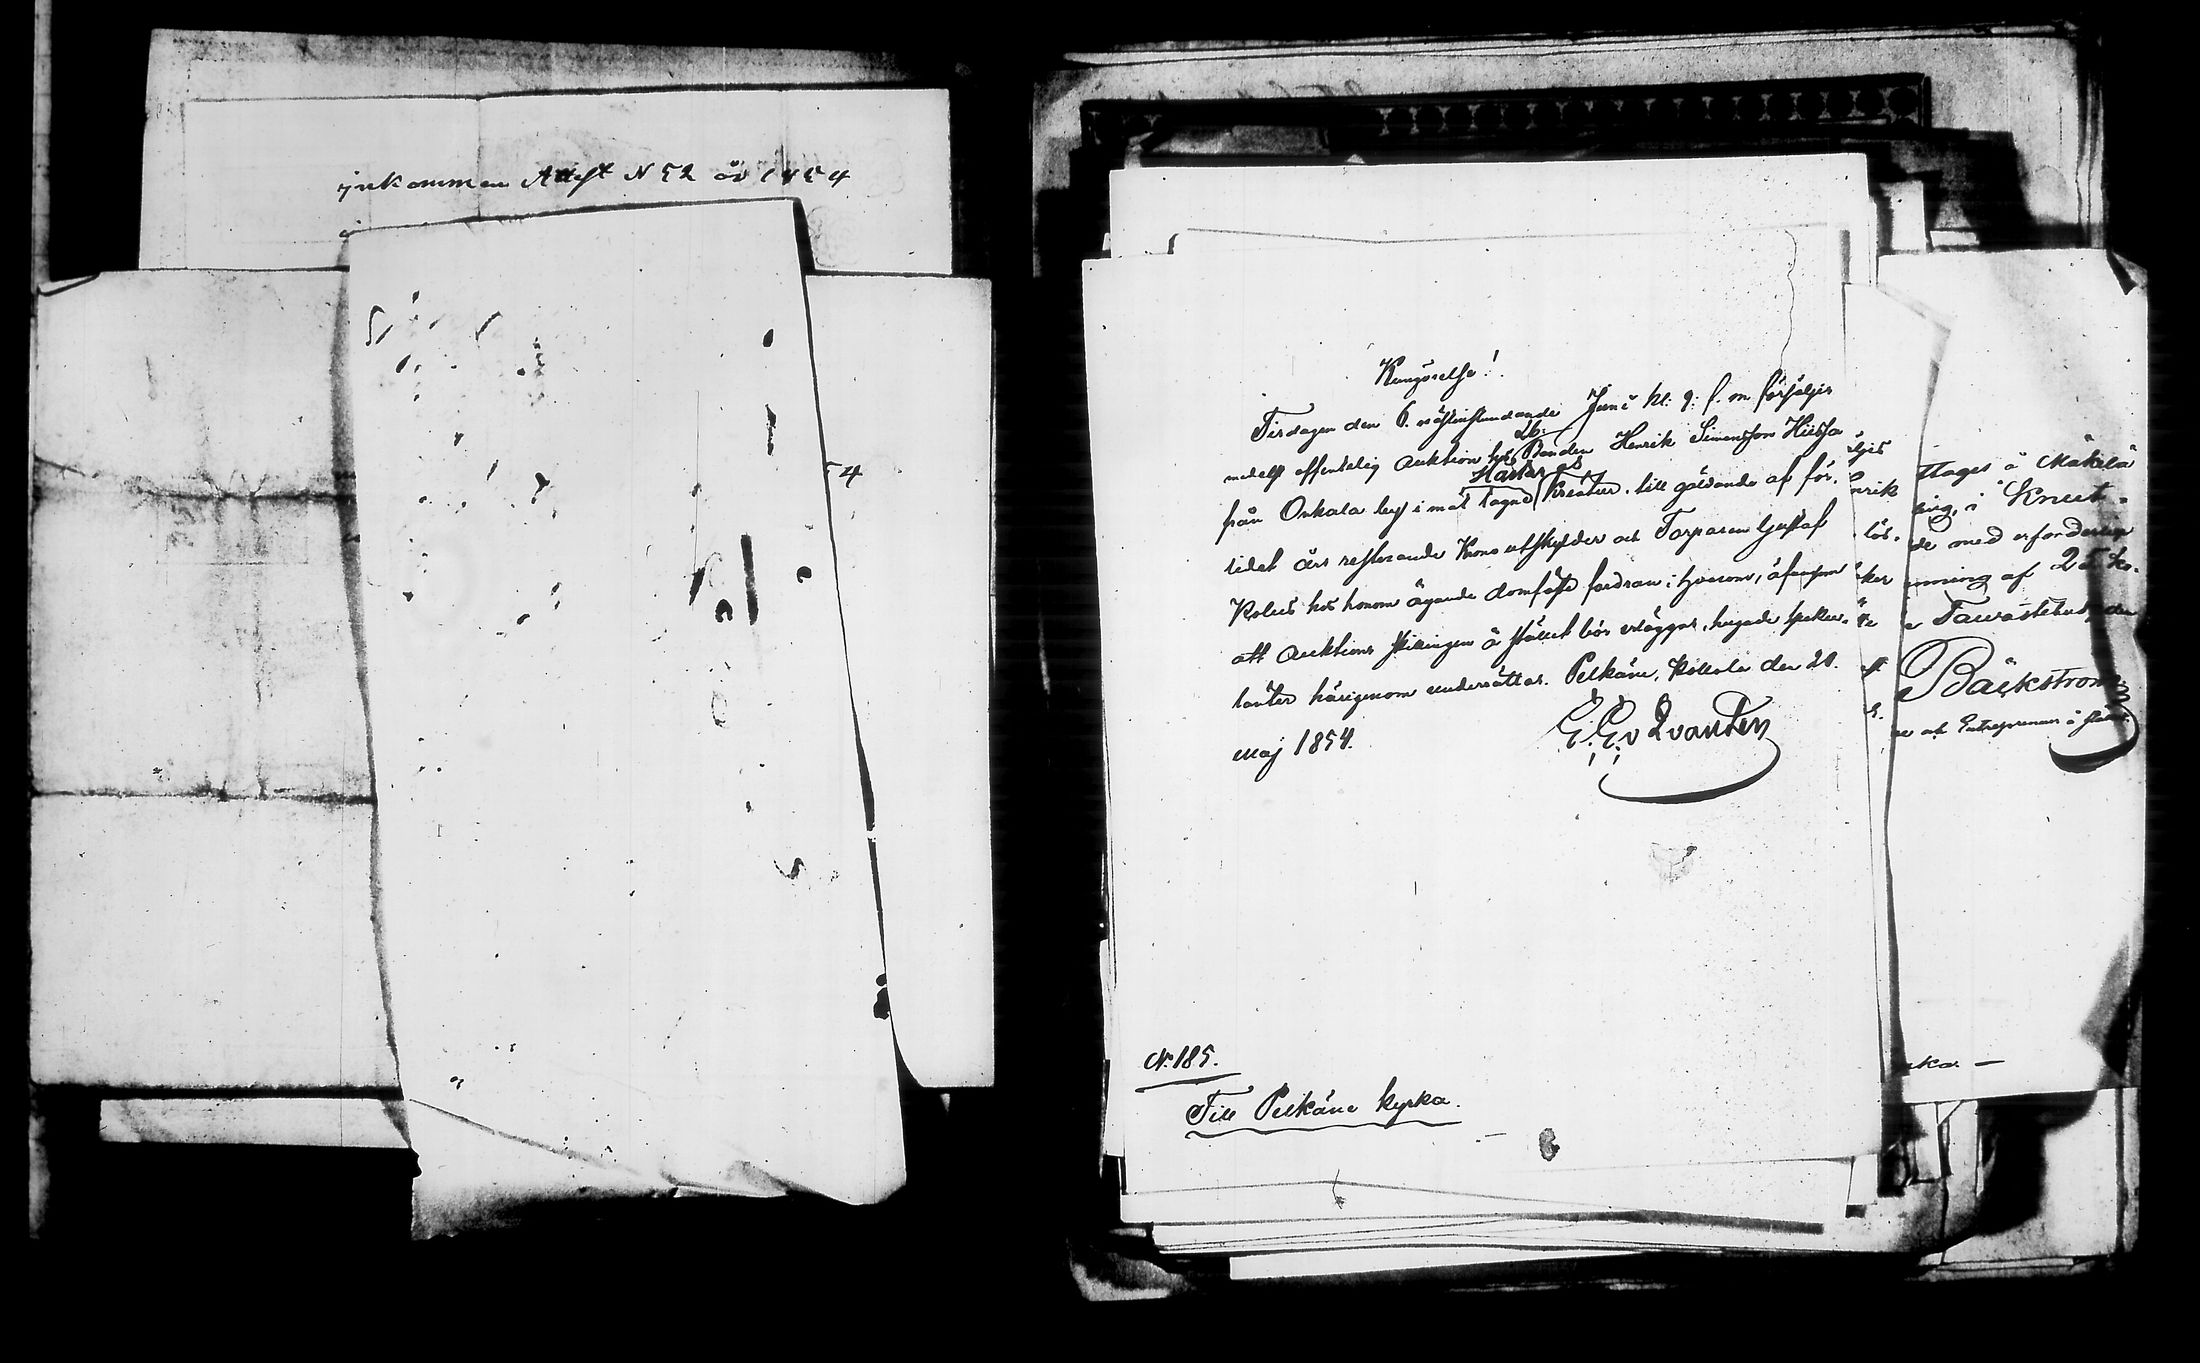 inkommen Attest N 52 år 1854
54
Kungörelse!
Tisdagen den 6. nästinstundande Juni kl: 9. f. m. försäljes
medelst offentelig auktion hos Bonden Henrik Simonsson Hiissa
från Onkala by i mät tagne Hästar o: Kreatur, till gäldande af för-
lidet års resterande Krono utskylder och Torparen Gustaf
hos honom ägande domfäste fordran; hvarom, äfvensom
att auktions skillingen å stället bör erläggas, hugade speku-
lanter härigenom underrättas. Pelkäne, Kollola den 20.
Maj 1854.
E. E. v Qvanten
N: 185.
Till Pelkäne kyrka.
ljes
nrik
lös.
ker
ttages å Mäkelä
ning, i Knut-
de med erforderlige
mning af 25 ko.
Tawastehus, den
Bäckström
Entrepreneur i
nkar —